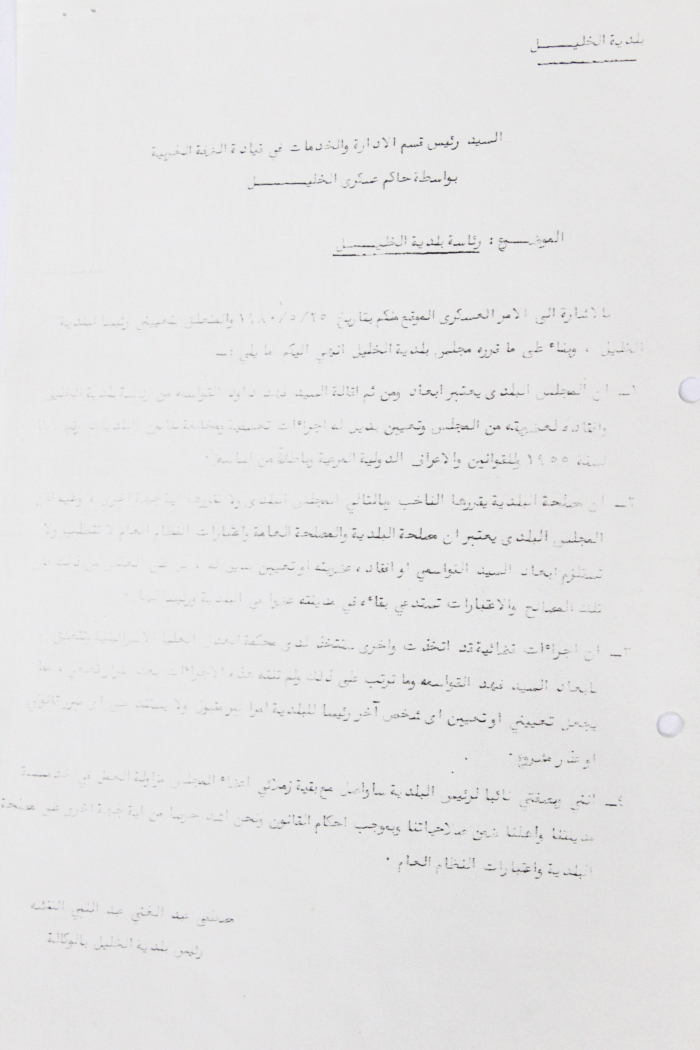 بلدية الخليـــــل
السيد رئيس قسم الادارة والخدمات في قيادة الضفة الغربية
بواسطة حاكم عسكرى الخليـــــل
الموضـــوع : رئاسة بلدية الخليـــــل
بالاشارة الى الامر العسكرى الموقع منكم بتاريخ ١٩٨٠/٥/٢٥ والمتعلق بتعييني رئيسا لبلدية
الخليل ، وبناء على ما قرره مجلس بلدية الخليل انهي اليكم ما يلي :ــ
١ــ ان المجلس البلدى يعتبر ابعاد ومن ثم اقالة السيد فهد داود القواسمه من
وافقاده لعضويته من المجلس وتعيين بديل له اجراءات تعسفية ومخالفة
لسنة ١٩٥٥ وللقوانين والاعراف الدولية المرعية وباطلة من اساسها .
٢ــ ان مصلحة البلدية يقررها الناخب وبالتالي المجلس البلدى ولا تقررها اية جهة اخرى ،
المجلس البلدى يعتبر ان مصلحة البلدية والمصلحة العامة واعتبارات النظام العام لا تتطلب ولا
تستلزم ابعاد السيد القواسمي او افقاده عضويته او تعيين بديل له ،
تلك المصالح والاعتبارات تستدعي بقاءه في مدينته عضوا في البلدية ورئيسا لها .
٣ــ ان اجراءات قضائية قد اتخذت واخرى ستتخذ لدى محكمة العدل العليا الاسرائيلية
بابعاد السيد فهد القواسمه وما ترتب على ذلك ولم تنته هذه الاجراءات بعد
يجعل تعييني او تعيين اى شخص آخر رئيسا للبلدية امرا غير ولا يستند الى اى مبرر قانوني
او عذر مشروع .
٤ــ انني وبصفتي نائبا لرئيس البلدية ساواصل مع بقية زملائي اعضاء المجلس مزاولة العمل في خدمـــة
مدينتنا واهلنا ضمن صلاحياتنا وبموجب احكام القانون ونحن اشد حرصا من اية جهة اخرى على مصلحة
البلدية واعتبارات النظام العام .
مصطفى عبد الغني عبد النبي النتشه
رئيس بلدية الخليل بالوكالة